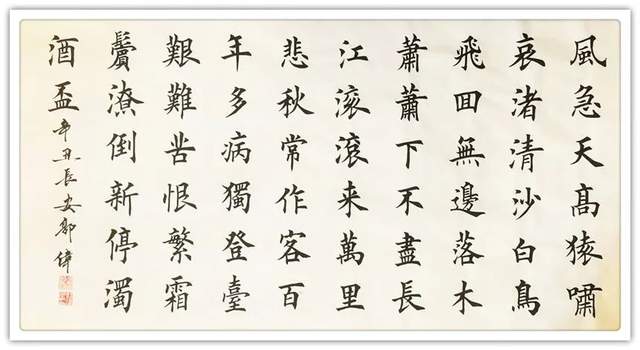 風急天髙猿嘯
哀渚清沙白鳥
飛囬無邊落木
蕭蕭下不盡長
江滚滾来萬里
悲秋常作客百
年多病獨登臺
艱難苦恨繁霜
鬢潦倒新停濁
酒盃辛丑長安郭偉